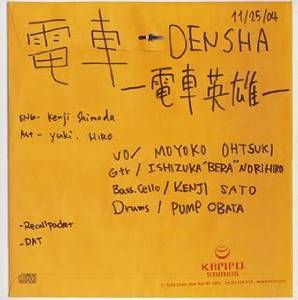 11/25/04
電車-DENSHA
-電車英雄-
ENG- Kenji Shimoda
Art- yuki. HIRO
VO/ MOYOKO OHTSUKI
Gtr/ ISHIZUKA "BERA" NORIHIRO
Bass.Cello/ KENJI SATO
Drums/ PUMP OBATA
-Recallpocket
-DAT